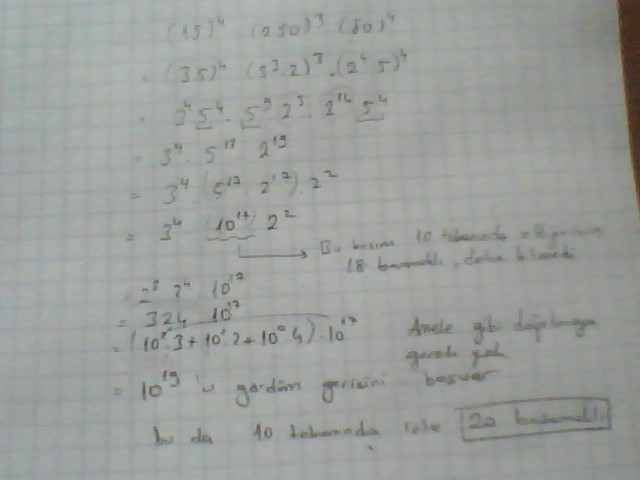 (15)⁴ (250)³ (80)⁴
= (3.5)⁴ (5³.2)³.(2⁴ 5)⁴
= 3⁴ 5⁴. 5⁹ 2³. 2¹⁶ 5⁴
= 3⁴. 5¹⁷ 2¹⁹
= 3⁴ (5¹⁷ 2¹⁷) 2²
= 3⁴ (10¹⁷) 2²
Bu kısım 10 tabanında
18 basamaklı, daha
= 2² 3⁴ 10¹⁷
= 324 10¹⁷
= (10².3+10¹2+10⁰4).10¹⁷
Amele gibi dağıtmaya
gerek yok
= 10¹⁹ 'u gördüm gerisini
bu da 10 tabanında işte 20 basamaklı